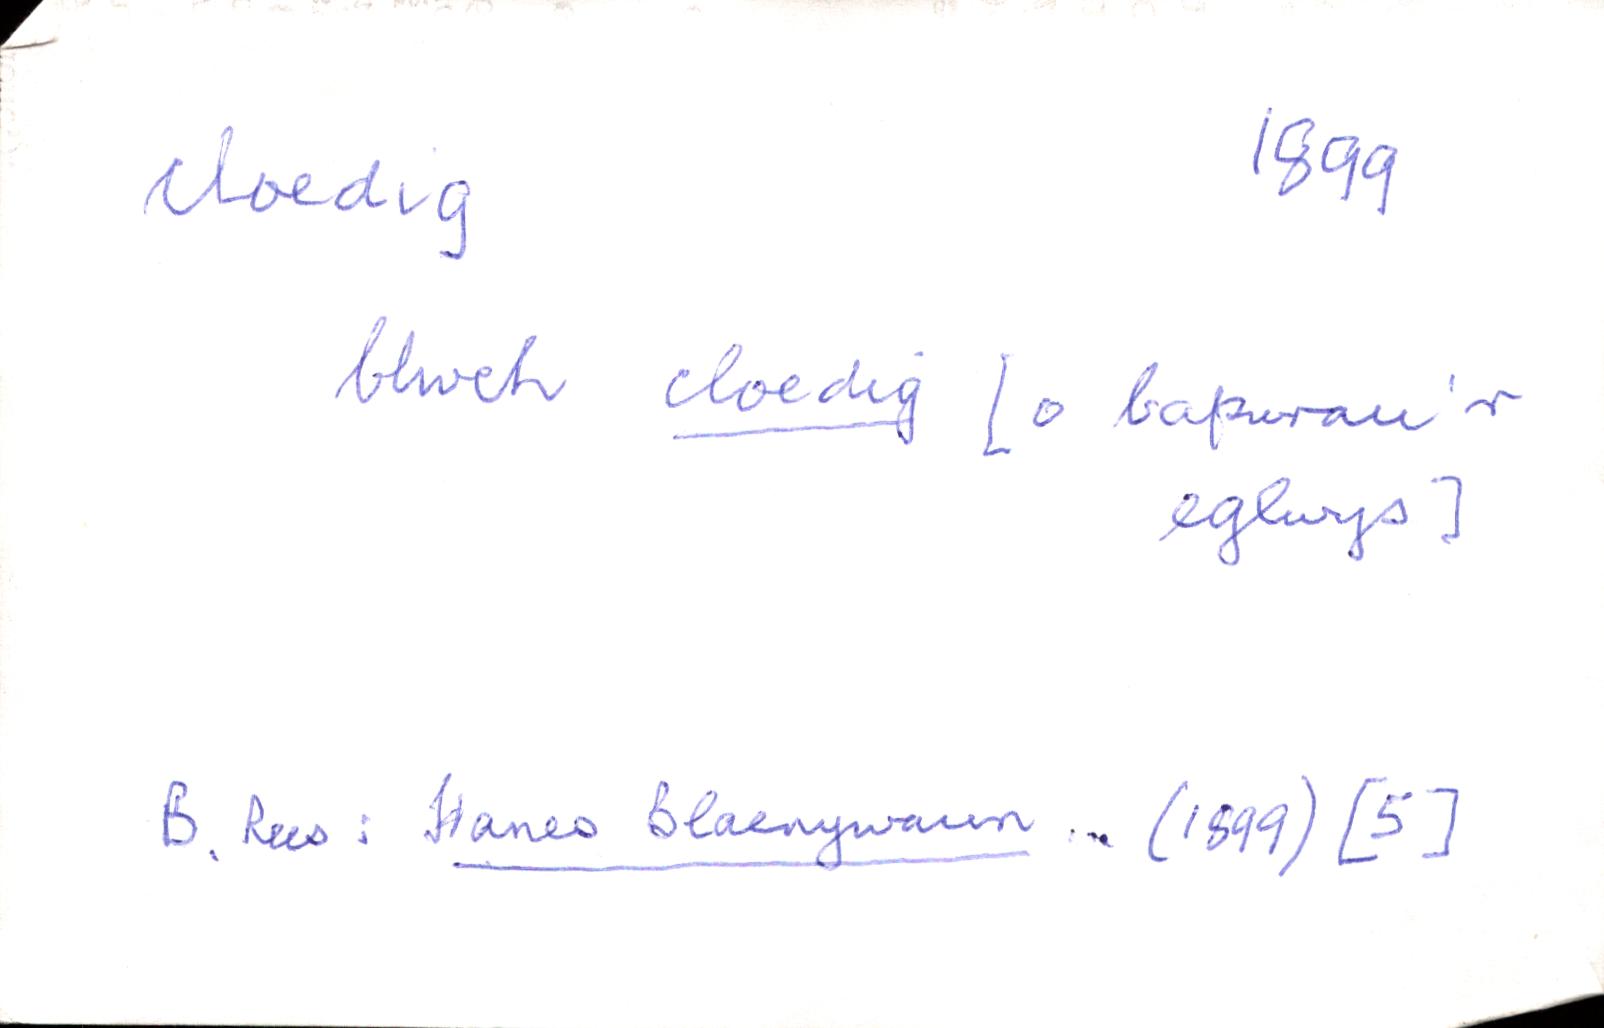 cloedig 1899
blwch cloedig [o bapurau'r
eglwys]
B. Rees: Hanes Blaenywaun ... (1899) [5]